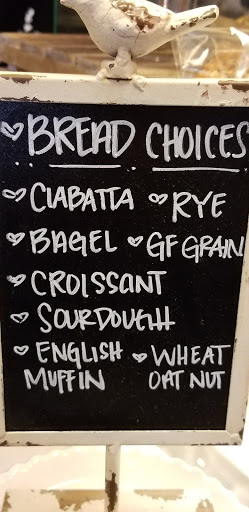 BREAD CHOICES
CIABATTA RYE
BAGEL GF GRAIN
CROISSANT
SOURDOUGH
ENGLISH WHEAT
MUFFIN OAT NUT